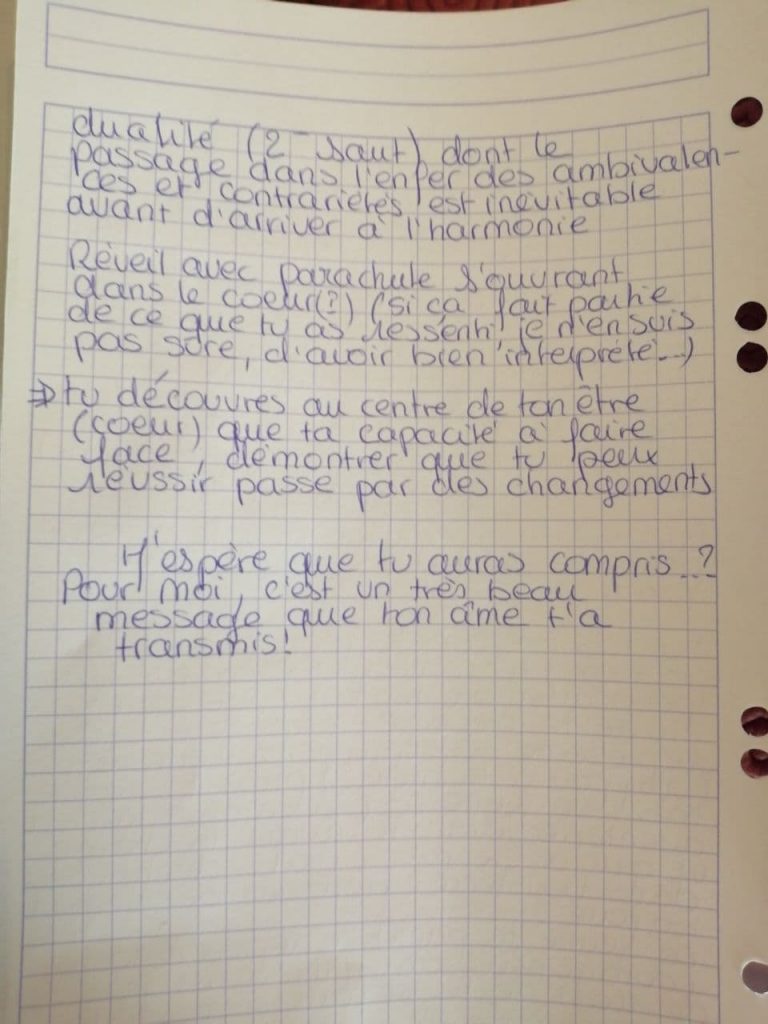 dualité (2 saut) dont le
passage dans l'enfer des ambivalen-
ces et contrariétés est inévitable
avant d'arriver à l'harmonie
Réveil avec parachute s'ouvrant
dans le coeur(?) (si ça fait partie
de ce que tu as ressenti, je n'en suis
pas sûre, d'avoir bien interprété...)
⇒ tu découvres au centre de ton être
(coeur) que ta capacité à faire
face, démontrer que tu peux
réussir passe par des changements
H'espère que tu auras compris...?
Pour moi, c'est un très beau
message que ton âme t'a
transmis!